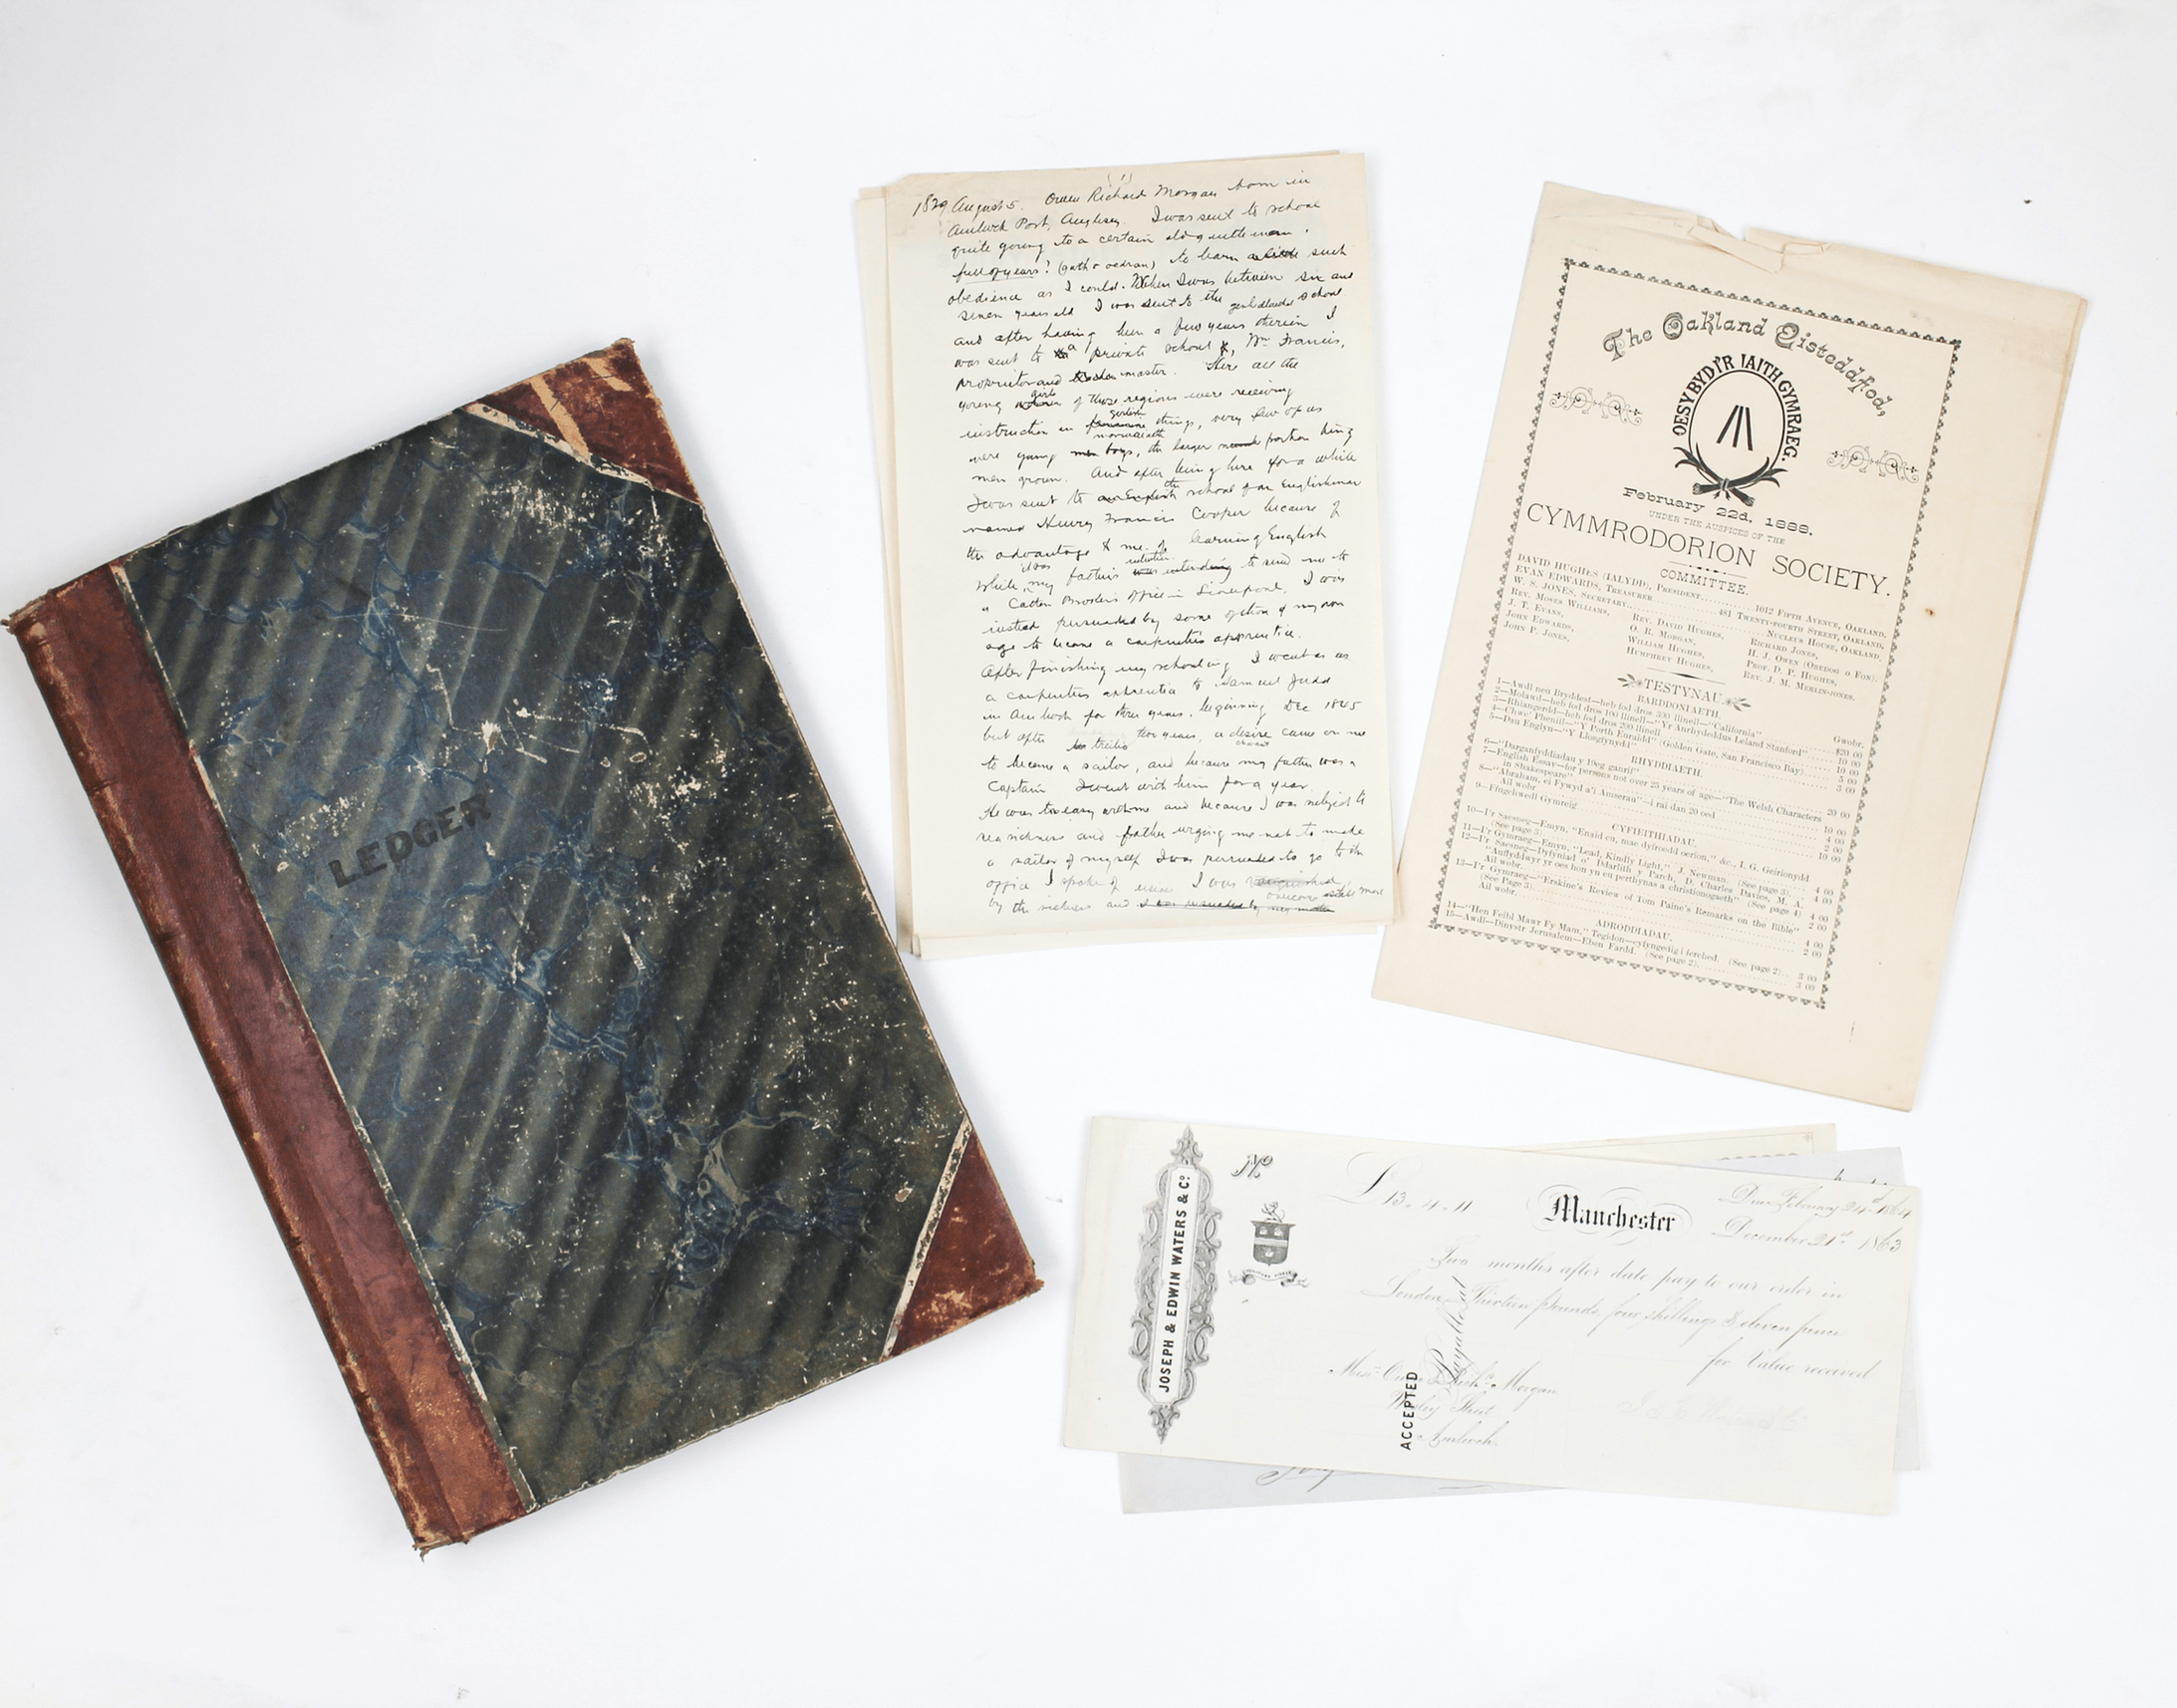 LEDGER
(1)
1829 August 5. Owen Richard Morgan born in
Amlwch Port, Anglesey. I was sent to school
quite young to a certain old gentleman
full of years! to learn a little such
obedience as I could. When I was between six and
seven years old I was sent to the school
and after having been a few years therein I
was sent to a private school, Wm Francis,
proprietor and master. Here all the
young girls of those regions were receiving
instruction in girlish things, very few of us
were young boys, the larger portion being
men grown. And after being here for a while
I was sent to the school of an Englishman
named Henry Francis Cooper because of
the advantage to me of learning English
While it was my father's intention to send me to
a Cotton Broker's Office in Liverpool, I was
instead persuaded by some of my own
age to become a carpenter's apprentice.
After finishing my schooling I went as
a carpenter's apprentice to Samuel Judd
in Amlwch for three years, beginning Dec 1845
but after two years, a desire came on me
to become a sailor, and because my father was a
Captain I went with him for a year.
He was too easy with me and because I was subject to
sea sickness and father urging me not to make
a sailor of myself I was persuaded to go to the
office I spoke of I was
by the sickness and
The Oakland Eisteddfod,
OES Y BYD I'R IAITH GYMRAEG.
February 22d, 1888.
UNDER THE AUSPICES OF THE
CYMMRODORION SOCIETY.
COMMITTEE.
DAVID HUGHES (IALYDD), PRESIDENT..........1012 FIFTH AVENUE, OAKLAND.
EVAN EDWARDS, TREASURER..........481 TWENTY-FOURTH STREET, OAKLAND.
W. S. JONES, SECRETARY..........NUCLEUS HOUSE, OAKLAND.
REV. MOSES WILLIAMS, REV. DAVID HUGHES, RICHARD JONES,
J. T. EVANS, O. R. MORGAN, H. J. OWEN (OBEDOG O FON),
JOHN EDWARDS, WILLIAM HUGHES, PROF. D. P. HUGHES,
JOHN P. JONES, HUMPHREY HUGHES, REV. J. M. MERLIN-JONES.
TESTYNAU
BARDDONIAETH.
Gwobr.
1—Awdl neu Bryddest—heb fod dros 300 llinell—"California" $20 00
2—Molawd—heb fod dros 100 llinell—"Yr Anrhydeddus Leland Stanford" 10 00
3—Rhiangerdd—heb fod dros 200 llinell 10 00
4—Chwe' Phenill—"Y Porth Euraidd" (Golden Gate, San Francisco Bay) 5 00
5—Dau Englyn—"Y Llongfynydd" 3 00
RHYDDIAETH.
6—"Darganfyddiadau y 19eg ganrif" 20 00
7—English Essay—for persons not over 25 years of age—"The Welsh Characters
in Shakespeare" 10 00
8—"Abraham, ei Fywyd a'i Amserau"—i rai dan 20 oed 4 00
Ail wobr 2 00
9—Ffugchwedl Gymreig 10 00
CYFIEITHIADAU.
10—I'r Saesneg—Emyn, "Enaid cu, mae dyfroedd oerion," &c., I. G. Geirionydd
(See page 3) 4 00
11—I'r Gymraeg—Emyn, "Lead, Kindly Light," J. Newman. (See page 3) 4 00
12—I'r Saesneg—Dyfyniad o' Ddarlith y Parch. D. Charles Davies, M. A.
"Anffyddwyr yr oes hon yn eu perthynas a christionogaeth" (See page 4) 4 00
Ail wobr. 2 00
13—I'r Gymraeg—"Erskine's Review of Tom Paine's Remarks on the Bible"
(See Page 3) 4 00
Ail wobr. 2 00
ADRODDIADAU.
14—"Hen Feibl Mawr Fy Mam," Tegidon—cyfyngedig i ferched. (See page 2) 3 00
15—Awdl—Dinystr Jerusalem—Eben Fardd. (See page 2) 3 00
JOSEPH & EDWIN WATERS & Co.
No
£13. 4. 11
Manchester
Due February 24th 1864
December 21st 1863
Two months after date pay to our order in
London Thirteen Pounds, four shillings & eleven pence
for Value received
Messrs Owen & Richd Morgan
Wesley Street
Amlwch
ACCEPTED
Payable at